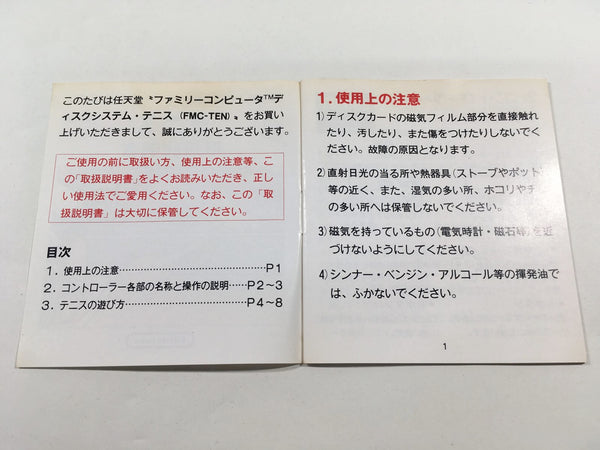 このたびは任天堂〝ファミリーコンピュータTMデ
ィスクシステム・テニス(FMC-TEN)〟をお買い
上げいただきまして、誠にありがとうございます。
ご使用の前に取扱い方、使用上の注意等、こ
の「取扱説明書」をよくお読みいただき、正し
い使用法でご愛用ください。なお、この「取
扱説明書」は大切に保管してください。
目次
1．使用上の注意……………………………P1
2．コントローラー各部の名称と操作の説明……P2〜3
3．テニスの遊び方………………………P4〜8
1．使用上の注意
1)ディスクカードの磁気フィルム部分を直接触れ
たり、汚したり、また傷をつけたりしないでく
ださい。故障の原因となります。
2)直射日光の当る所や熱器具(ストーブやポット)
等の近く、また、湿気の多い所、ホコリやチ
の多い所へは保管しないでください。
3)磁気を持っているもの(電気時計・磁石等)を近
づけないようにしてください。
4)シンナー・ベンジン・アルコール等の揮発油で
は、ふかないでください。
1